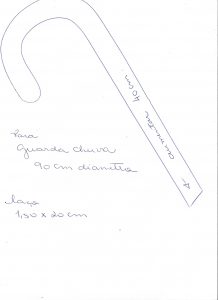 aumentar 40cm
Para
Guarda chuva
90 cm diametro
laço
1,50 x 20 cm